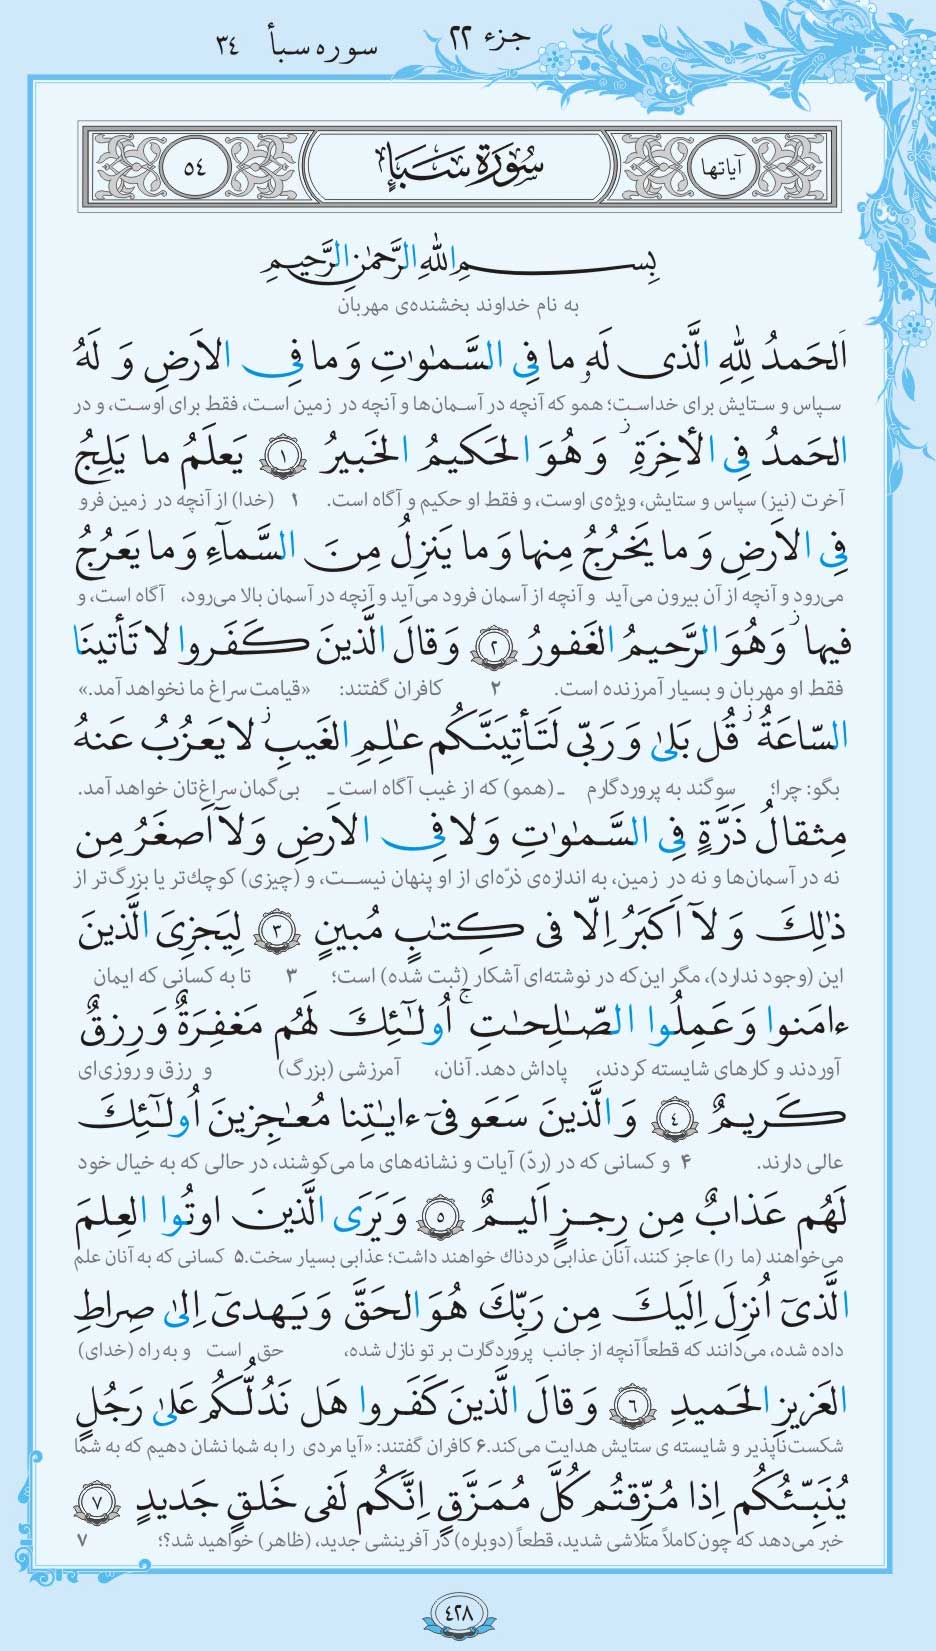 جزء ۲۲
سوره سبأ ۳۴
آیاتها
سُورَةُ سَبَإٍ
٥٤
بِسمِ اللهِ الرَّحمٰنِ الرَّحیمِ
به نام خداوند بخشنده‌ی مهربان
اَلحَمدُ لِلّٰهِ الَّذی لَهٗ ما فِی السَّمٰوٰتِ وَ ما فِی الاَرضِ وَ لَهُ
سپاس و ستایش برای خداست؛ همو که آنچه در آسمان‌ها و آنچه در زمین است، فقط برای اوست، و در
الحَمدُ فِی الأخِرَةِ ۚ وَ هُوَ الحَکیمُ الخَبیرُ ﴿١﴾ یَعلَمُ ما یَلِجُ
آخرت (نیز) سپاس و ستایش، ویژه‌ی اوست، و فقط او حکیم و آگاه است. ۱ (خدا) از آنچه در زمین فرو
فِی الاَرضِ وَ ما یَخرُجُ مِنها وَ ما یَنزِلُ مِنَ السَّمآءِ وَ ما یَعرُجُ
می‌رود و آنچه از آن بیرون می‌آید و آنچه از آسمان فرود می‌آید و آنچه در آسمان بالا می‌رود، آگاه است، و
فیها ۚ وَ هُوَ الرَّحیمُ الغَفورُ ﴿٢﴾ وَ قالَ الَّذینَ کَفَروا لا تَأتینَا
فقط او مهربان و بسیار آمرزنده است. ۲ کافران گفتند: «قیامت سراغ ما نخواهد آمد.»
السّاعَةُ ۚ قُل بَلیٰ وَ رَبّی لَتَأتِیَنَّکُم عٰلِمِ الغَیبِ ۚ لا یَعزُبُ عَنهُ
بگو: چرا؛ سوگند به پروردگارم ـ (همو) که از غیب آگاه است ـ بی‌گمان سراغ‌تان خواهد آمد.
مِثقالُ ذَرَّةٍ فِی السَّمٰوٰتِ وَ لا فِی الاَرضِ وَ لآ اَصغَرُ مِن
نه در آسمان‌ها و نه در زمین، به اندازه‌ی ذرّه‌ای از او پنهان نیست، و (چیزی) کوچک‌تر یا بزرگ‌تر از
ذٰلِکَ وَ لآ اَکبَرُ اِلّا فی کِتٰبٍ مُبینٍ ﴿٣﴾ لِیَجزِیَ الَّذینَ
این (وجود ندارد)، مگر این‌که در نوشته‌ای آشکار (ثبت شده) است؛ ۳ تا به کسانی که ایمان
ءامَنوا وَ عَمِلُوا الصّٰلِحٰتِ ۚ اُولٰٓئِکَ لَهُم مَغفِرَةٌ وَ رِزقٌ
آوردند و کارهای شایسته کردند، پاداش دهد. آنان، آمرزشی (بزرگ) و رزق و روزی‌ای
کَریمٌ ﴿٤﴾ وَ الَّذینَ سَعَو فیٓ ءایٰتِنا مُعٰجِزینَ اُولٰٓئِکَ
عالی دارند. ۴ و کسانی که در (ردّ) آیات و نشانه‌های ما می‌کوشند، در حالی که به خیال خود
لَهُم عَذابٌ مِن رِجزٍ اَلیمٌ ﴿٥﴾ وَ یَرَی الَّذینَ اوتُوا العِلمَ
می‌خواهند (ما را) عاجز کنند، آنان عذابی دردناك خواهند داشت؛ عذابی بسیار سخت. ۵ کسانی که به آنان علم
الَّذیٓ اُنزِلَ اِلَیکَ مِن رَبِّکَ هُوَ الحَقَّ وَ یَهدیٓ اِلیٰ صِراطِ
داده شده، می‌دانند که قطعاً آنچه از جانب پروردگارت بر تو نازل شده، حق است و به راه (خدای)
العَزیزِ الحَمیدِ ﴿٦﴾ وَ قالَ الَّذینَ کَفَروا هَل نَدُلُّکُم عَلیٰ رَجُلٍ
شکست‌ناپذیر و شایسته ی ستایش هدایت می‌کند. ۶ کافران گفتند: «آیا مردی را به شما نشان دهیم که به شما
یُنَبِّئُکُم اِذا مُزِّقتُم کُلَّ مُمَزَّقٍ اِنَّکُم لَفی خَلقٍ جَدیدٍ ﴿٧﴾
خبر می‌دهد که چون کاملاً متلاشی شدید، قطعاً (دوباره) در آفرینشی جدید، (ظاهر) خواهید شد؟؛ ۷
٤٢٨